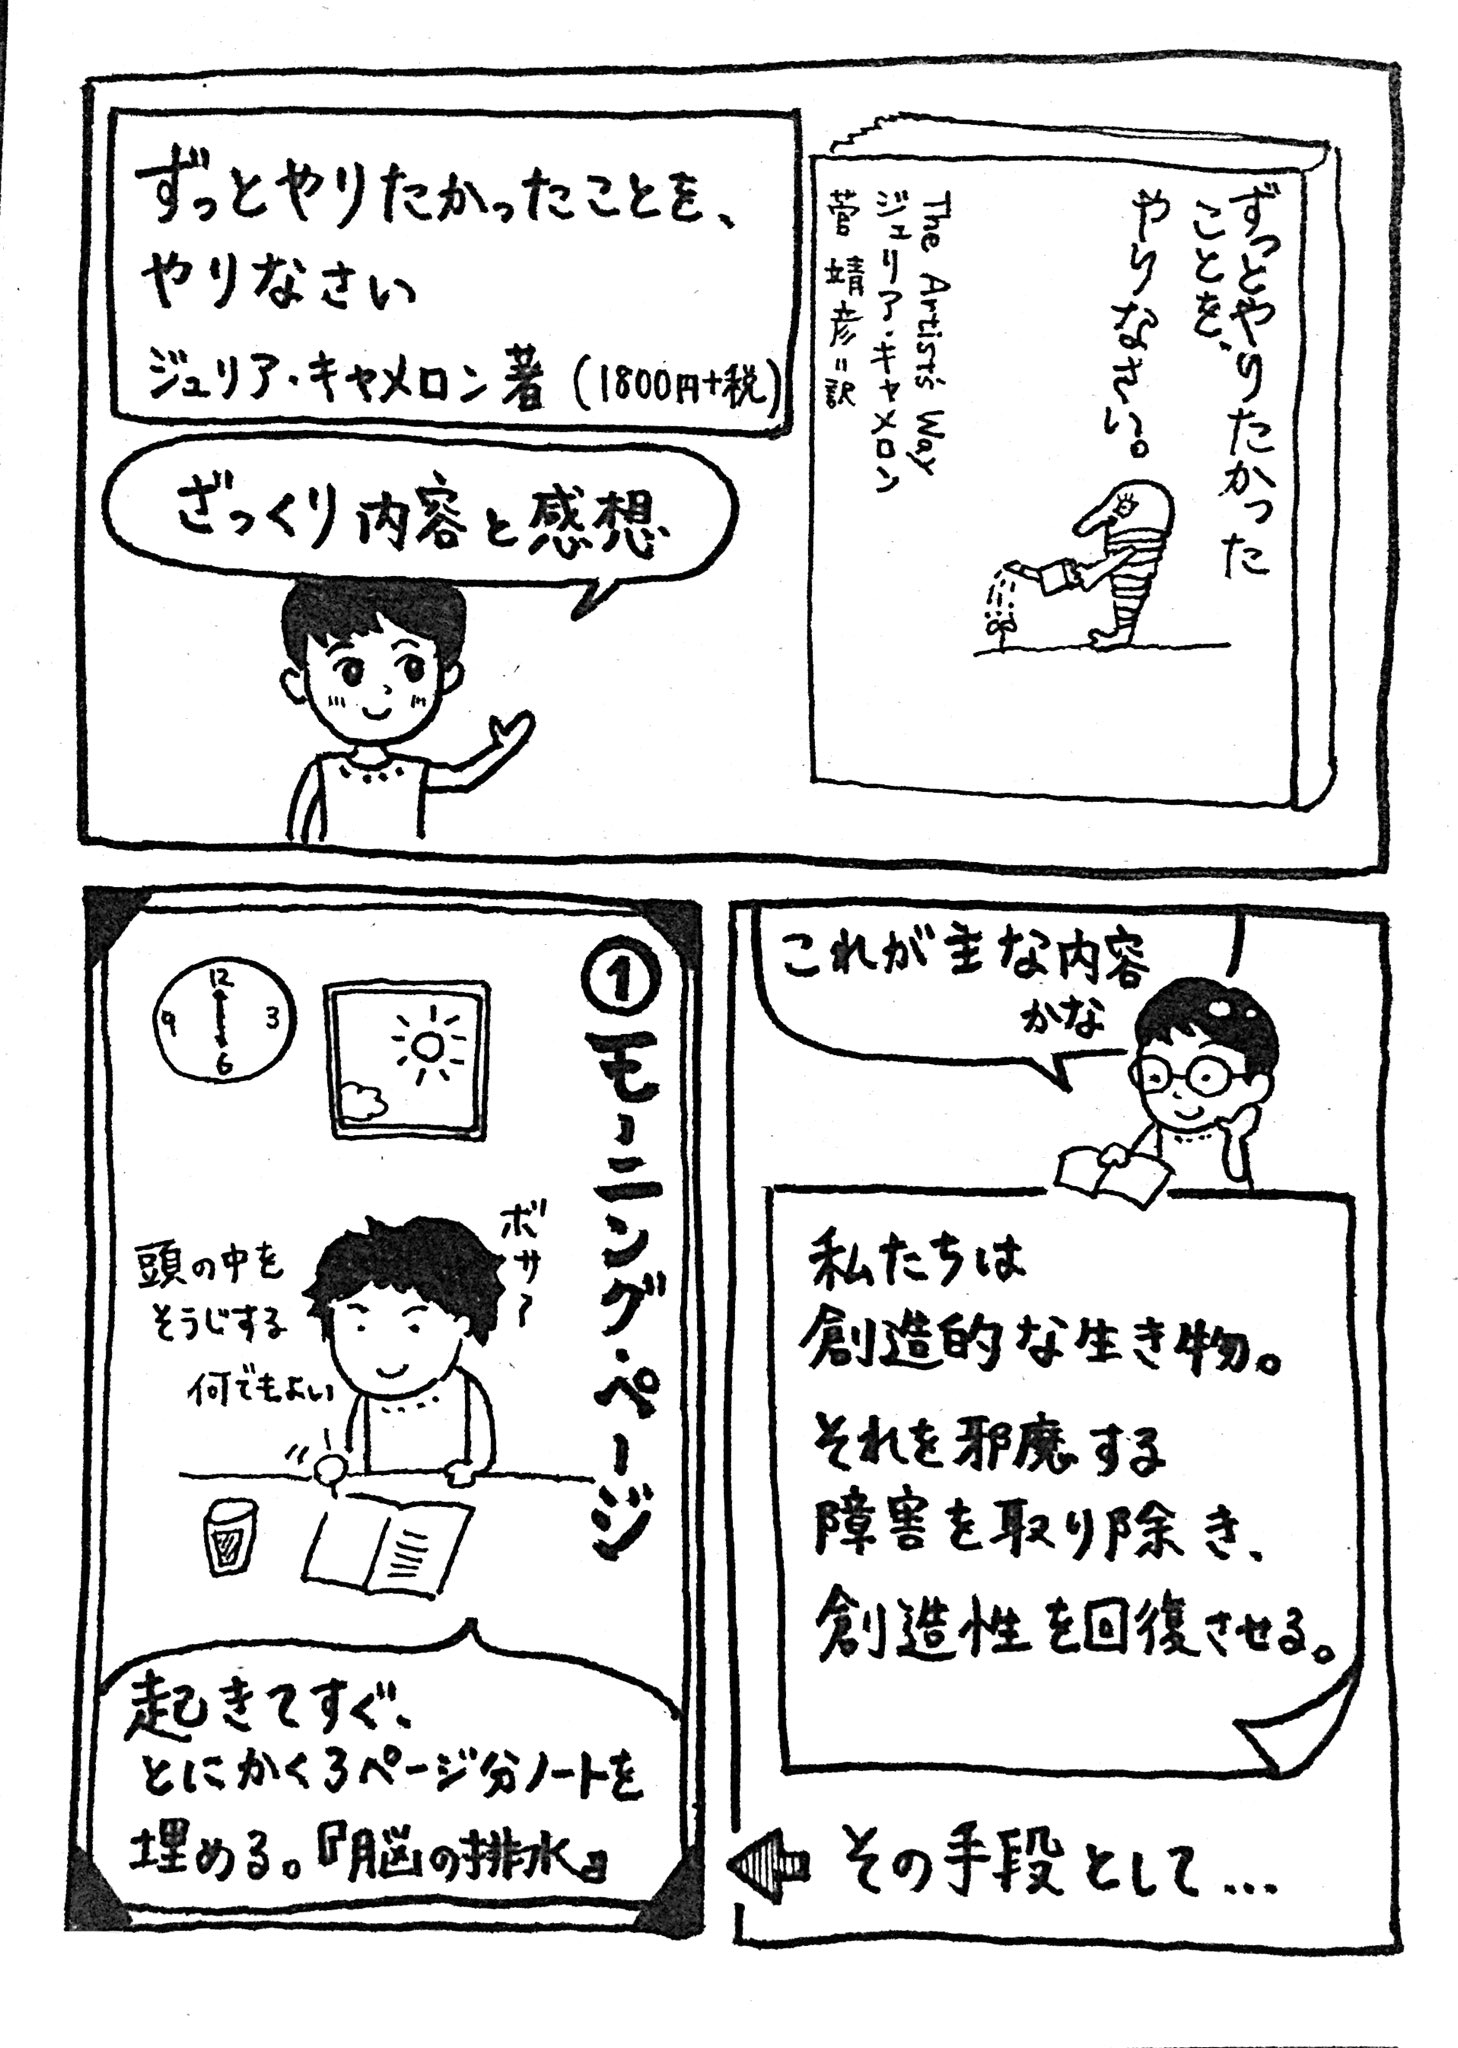 ずっとやりたかったことを、
やりなさい
ジュリア・キャメロン著（1800円+税）
ずっとやりたかった
ことを、
やりなさい。
The Artist's Way
ジュリア・キャメロン
菅 靖彦=訳
ざっくり内容と感想
これが主な内容
かな
私たちは
創造的な生き物。
それを邪魔する
障害を取り除き、
創造性を回復させる。
その手段として…
①モーニング・ページ
12
3
6
9
ボサァ
頭の中を
そうじする
何でもよい
起きてすぐ、
とにかく3ページ分ノートを
埋める。『脳の排水』